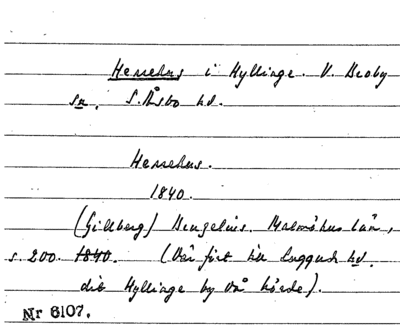 Herrehus i Hyllinge. V. Broby
sn. S. Åsbo hd.
Herrehus.
1840.
(Gillberg) Bengelius. Malmöhus län,
s. 200. 1840. (Där förts till Luggude hd.
dit Hyllinge by då hörde).
Nr 6107.